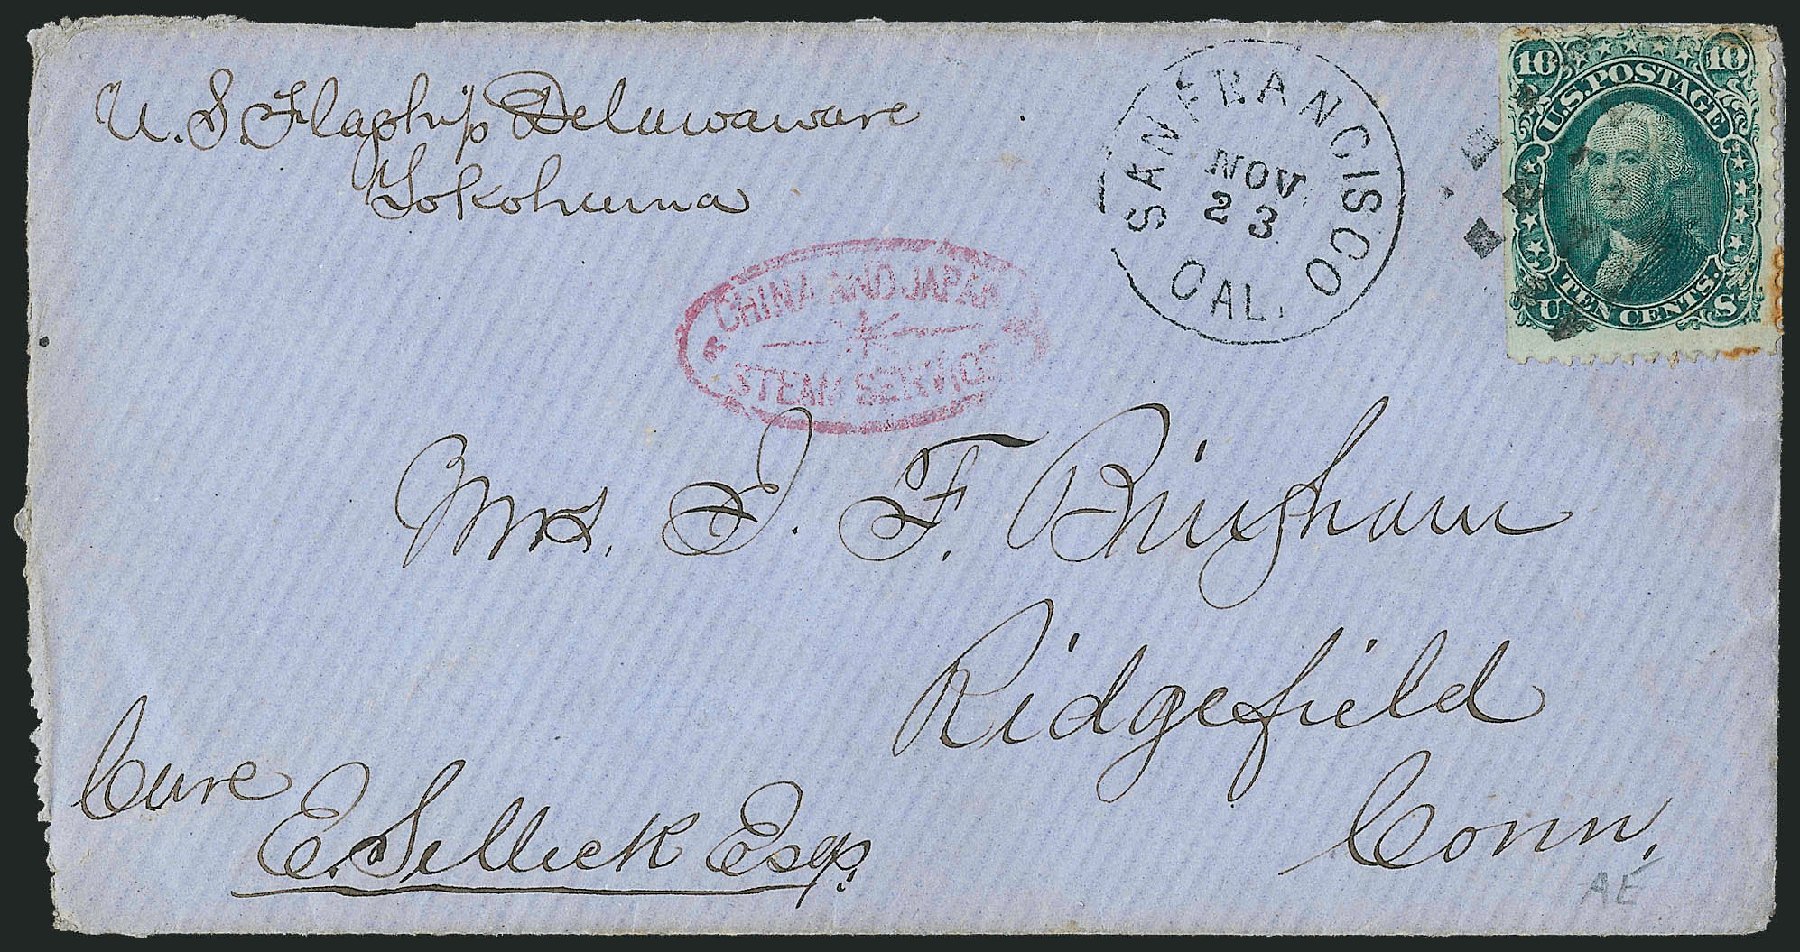 U.S. Flagship Delawaware
Yokohama
SAN FRANCISCO
NOV
23
CAL.
10 10
U.S. POSTAGE
TEN CENTS.
U S
CHINA AND JAPAN
STEAM SERVICE
Mrs. J. F. Bingham
Ridgefield
Conn.
Care
E. Selleck Esqr.
AE